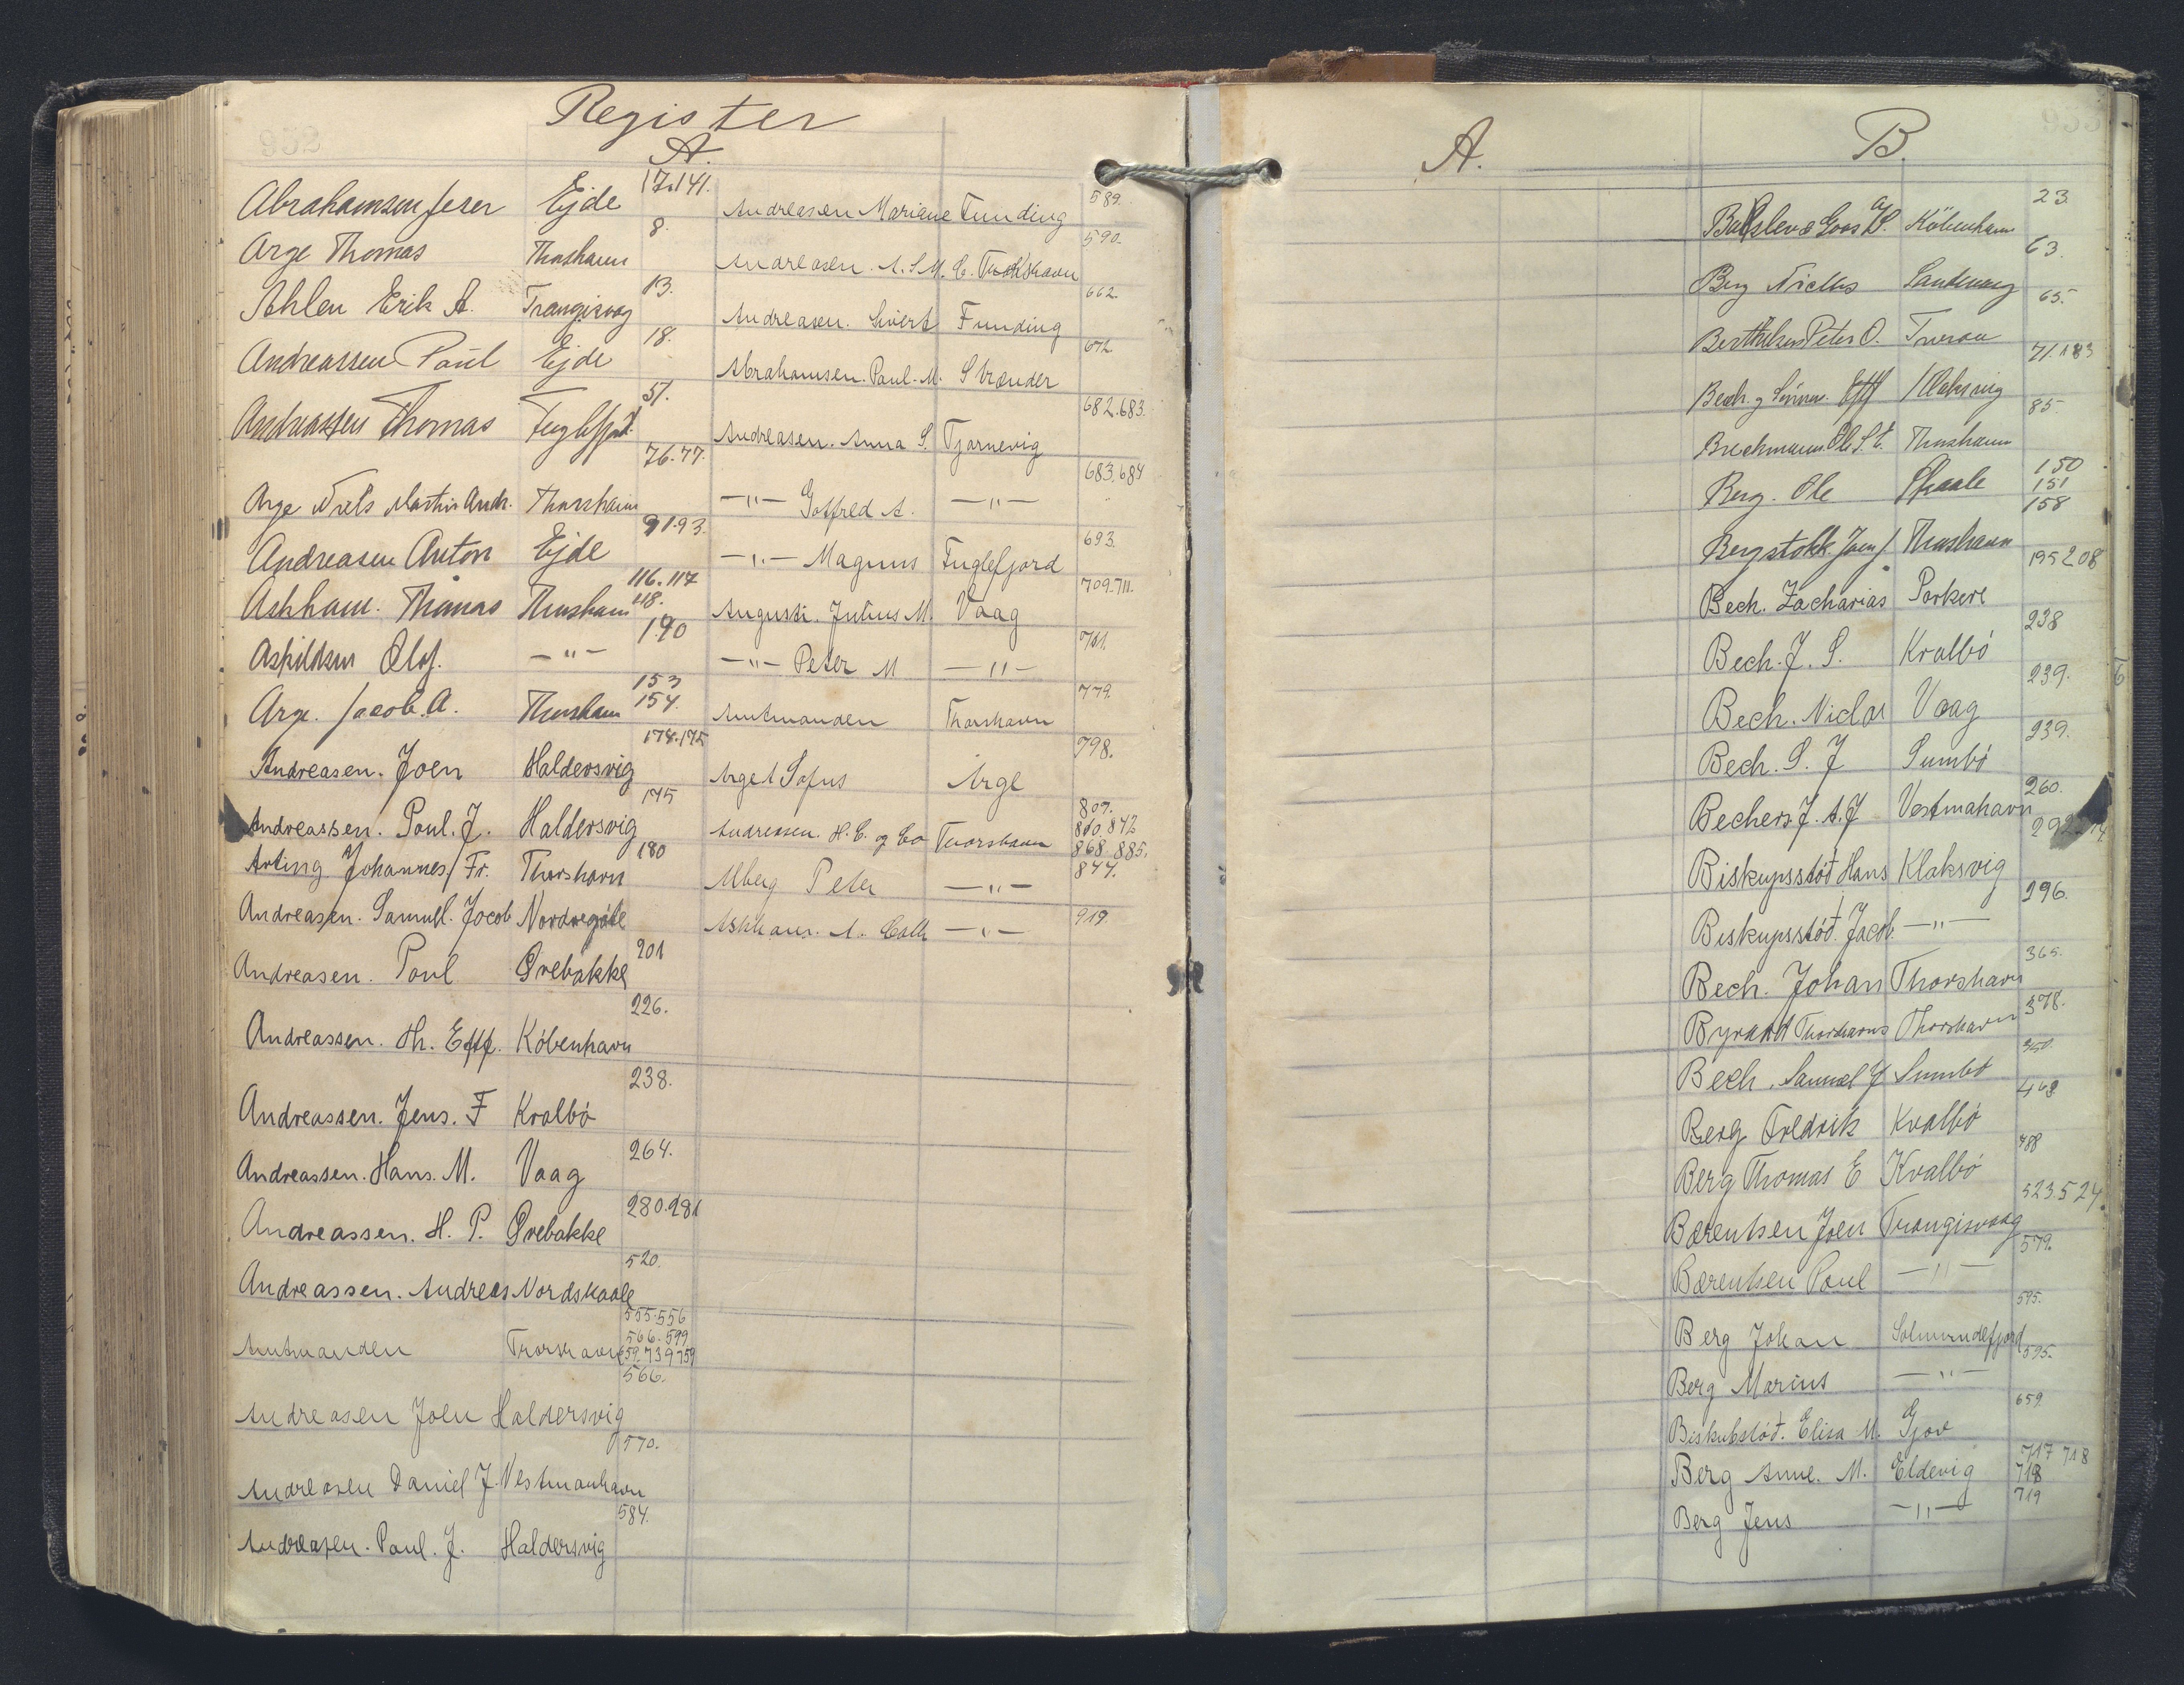 932
Register
A.
Abrahamsen Jeser Ejde 17.141.
Arge Thomas Thorshavn 8.
Ahlen Erik A. Trangisvog 13.
Andreassen Paul Ejde 18.
Andreassen Thomas Fuglefjord 51.
Arge Niels Martin Andr. Thorshavn 76.77.
Andreasen Anton Ejde 91.93.
Askham. Thomas Thorshavn 116.117 118.
Askildsen Olof. —"— 190
Arge. Jacob. A. Thorshavn 153 154.
Andreasen. Joen Haldersvig 174.175
Andreassen. Poul. J. Haldersvig 175
Arting Johannes Fr. Thorshavn 180
Andreasen. Samuel. Jacob Nordregöte
Andreasen. Poul Örebakke 201
Andreassen. Th. Eftf. Köbenhavn 226.
Andreassen. Jens. F Kvalbö 238.
Andreassen. Hans. M. Vaag 264.
Andreassen. H. P. Örebakke 280.281
Andreassen. Andreas Nordskaale 520.
Amtmanden Thorshavn 555.556 566.599 659.739 759
Andreasen Joen Haldersvig 566.
Andreasen Daniel J. Vestmanhavn 570.
Andreasen. Paul. J. Haldersvig 584.
Andreasen Mariane Funding 589.
Andreasen. A. S. M. C. Thorshavn 590.
Andreasen. Sivert Funding 662
Abrahamsen. Paul. M. Strænder 672
Andreasen. Anna S. Tjørnevig 682.683.
—"— Gotfred A. —"— 683.684
—"— Magnus Fuglefjord 693.
Augusti. Julius M. Vaag 709.711.
—"— Peter M —"— 711.
Amtmanden Thorshavn 779.
Arge A Sofus Arge 798.
Andreasen. H. C. og Co Thorshavn 807. 810.842 868.885.
Alberg Peter —"— 844.
Askham. A. Cath —"— 919
A.
B.
933
Balslev & Goos Köbenhavn 23.
Berg Niclas Sandevaag 63.
Berthelsen Peter O. Tveraa 65.
Bech. og Sönner. Eftf Klaksvig 71.183
Brechmann Ole S. E. Thorshavn 85.
Berg. Ole Skaale 150 151
Bergstokk. Joen J. Thorshavn 158
Bech. Zacharias Porkere 195 208
Bech. J. S. Kvalbö 238
Bech. Niclas Vaag 239.
Bech. S. J Sumbö 239.
Bechers J. A. J Vestmahavn 260.
Biskupsstöð Hans Klaksvig 292
Biskupsstöð. Jacob. —"— 296.
Bech. Johan Thorshavn 365.
Byraad Thorshavns Thorshavn 378.
Bech. Samuel J Sumbö 350.
Berg Fredrik Kvalbö 468
Berg Thomas E Kvalbö 488
Bærentsen Joen Trangisvaag 523.524.
Bærentsen Poul —"— 579.
Berg Johan Solmundefjord 595.
Berg Marius —"— 595.
Biskubstöð. Elisa M. Gjov 659
Berg Anne. M. Eldevig 717 718 718
Berg Jens —"— 719